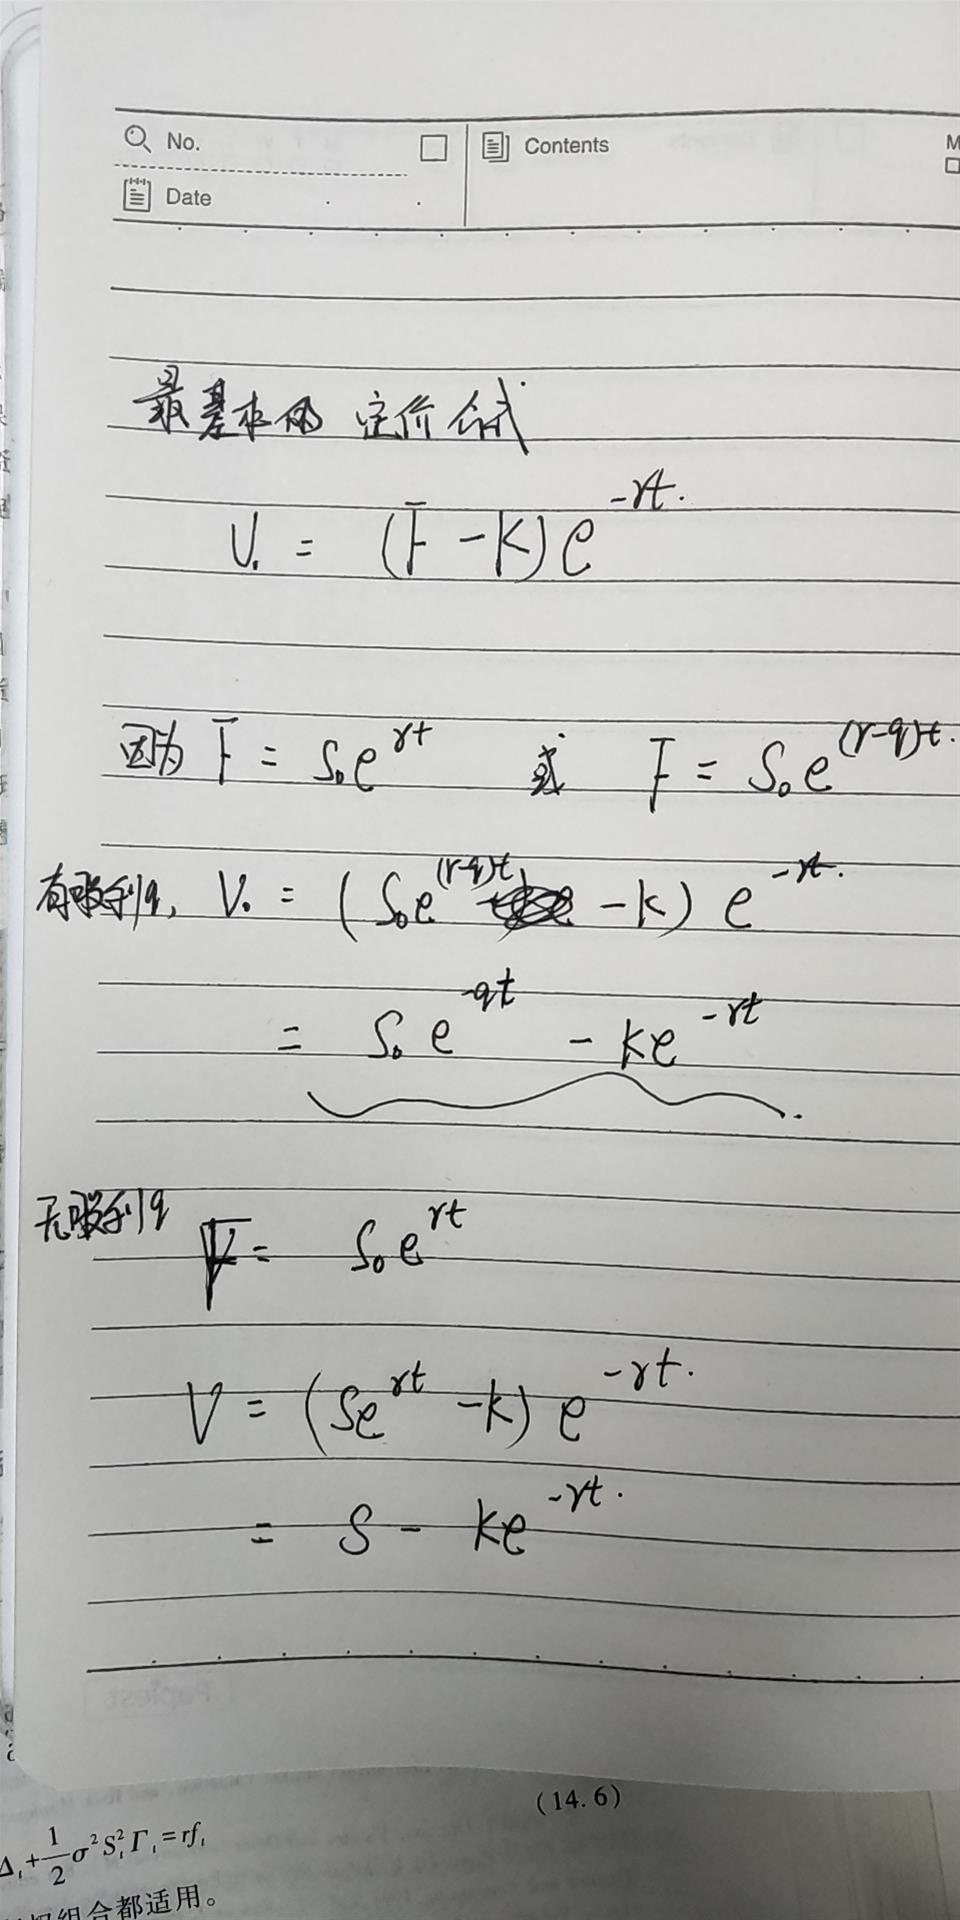 No.
Contents
M
Date
最基本的 定价公式
V₀ = (F - K) e^{-rt}.
因为 F = S₀e^{rt} 或 F = S₀e^{(r-q)t}.
有股利q, V₀ = (S₀e^{(r-q)t} - k) e^{-rt}.
= S₀e^{-qt} - ke^{-rt}
无股利q
F = S₀e^{rt}
V = (Se^{rt} - k) e^{-rt}.
= S - ke^{-rt}.
(14.6)
Δₜ+1/2σ²Sₜ²Γₜ=rfₜ
组合都适用。